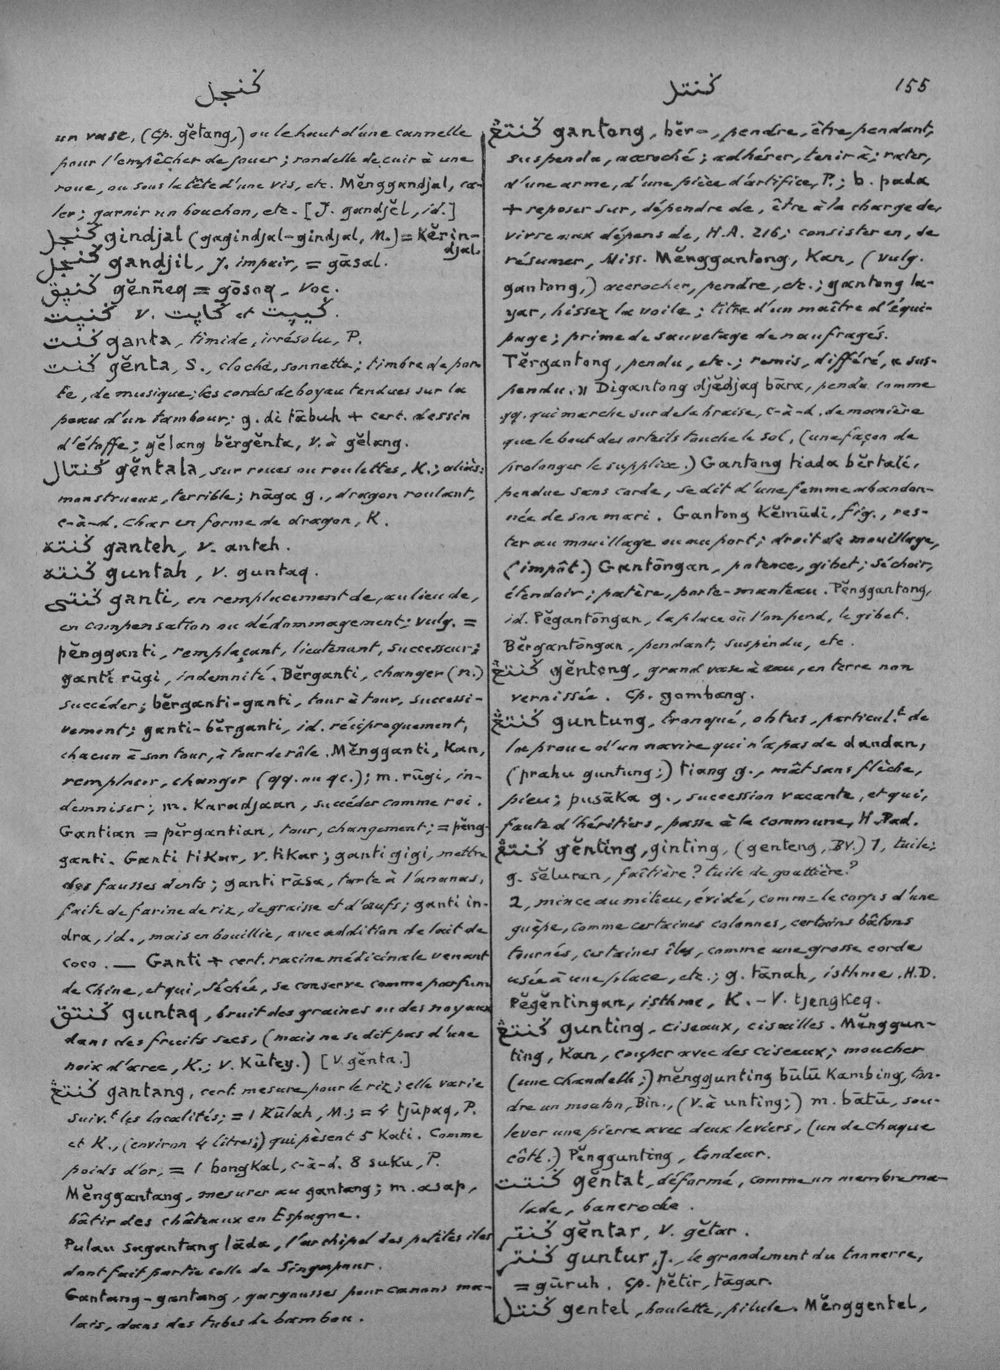 كنجل
كنتل 155
un vase, (cp. gĕtang,) ou le haut d'une cannelle
pour l'empêcher de jouer; rondelle de cuir à une
roue, ou sous la tête d'une vis, etc. Mĕnggandjal, ca-
ler; garnir un bouchon, etc. [J. gandjĕl, id.]
كنجل gindjal (gagindjal-gindjal, M.) = Kĕrin-
djal.
كنجل gandjil, J. impair, = gāsal.
gĕnñeq = gōsoq, voc.
V. et
كنت ganta, timide, irrésolu, P.
كنت gĕnta, S., cloche, sonnette; timbre de por-
te, de musique; les cordes de boyau tendues sur la
peau d'un tambour; g. di tābuh + cert. dessin
d'étoffe; gĕlang bĕrgĕnta, V. à gĕlang.
كنتال gĕntala, sur roues ou roulettes, K.;
monstrueux, terrible; nāga g., dragon roulant,
c-à-d. char en forme de dragon, K.
كنته ganteh, V. anteh.
كنته guntah, V. guntaq.
كنتي ganti, en remplacement de, au lieu de,
en compensation ou dédommagement; vulg. =
pĕngganti, remplaçant, lieutenant, successeur;
ganti rūgi, indemnité. Bĕrganti, changer (n.)
succéder; bĕrganti-ganti, tour à tour, successi-
vement; ganti-bĕrganti, id. réciproquement,
chacun à son tour, à tour de rôle. Mĕngganti, Kan,
remplacer, changer (qq. ou qc.); m. rūgi, in-
demniser; m. Karadjaan, succéder comme roi.
Gantian = pĕrgantian, tour, changement; = pĕng-
ganti. Ganti tikar, V. tikar; ganti gigi, mettre
des fausses dents; ganti rāsa, tarte à l'ananas,
faite de farine de riz, de graisse et d'œufs; ganti in-
dra, id., mais en bouillie, avec addition de lait de
coco. — Ganti + cert. racine médicinale venant
de Chine, et qui, séchée, se conserve comme parfum
كنتق guntaq, bruit des graines ou des noyaux
dans des fruits secs, (mais ne se dit pas d'une
noix d'arec, K.; V. Kūtey.) [V. gĕnta.]
كنتڠ gantang, cert. mesure pour le riz; elle varie
suiv.t les localités; = 1 Kūlah, M.; = 4 tjūpaq, P.
et K., (environ 4 litres;) qui pèsent 5 Kati. Comme
poids d'or, = 1 bongKal, c-à-d. 8 suku, P.
Mĕnggantang, mesurer au gantang; m. asap,
bâtir des châteaux en Espagne.
Pulau sagantang lāda, l'archipel des petites iles
dont fait partie celle de Singapour.
Gantang-gantang, gargousses pour canons ma-
lais, dans des tubes de bambou.
كنتڠ gantong, bĕr-, pendre, être pendant,
suspendu, accroché; adhérer, tenir à; rater,
d'une arme, d'une pièce d'artifice, P.; b. pada
+ reposer sur, dépendre de, être à la charge de,
vivre aux dépens de, H.A. 216; consister en, se
résumer, Miss. Mĕnggantong, Kan, (vulg.
gantong,) accrocher, pendre, etc.; gantong la-
yar, hissez la voile; titre d'un maître d'équi-
page; prime de sauvetage de naufragés.
Tĕrgantong, pendu, etc.; remis, différé, « sus-
pendu. » Digantong djĕdjaq bāra, pendu comme
qq. qui marche sur de la braise, c-à-d. de manière
que le bout des orteils touche le sol, (une façon de
prolonger le supplice.) Gantong tiada bĕrtali,
pendue sans corde, se dit d'une femme abandon-
née de son mari. Gantong Kĕmūdi, fig., res-
ter au mouillage ou au port; droit de mouillage,
(impôt.) Gantōngan, potence, gibet; séchoir,
étendoir; patère, porte-manteau. Pĕnggantong,
id. Pĕgantōngan, la place où l'on pend, le gibet.
Bĕrgantōngan, pendant, suspendu, etc.
كنتڠ gĕntong, grand vase à eau, en terre non
vernissée. Cp. gombang.
كنتڠ guntung, tronqué, obtus, particul.t de
la proue d'un navire qui n'a pas de dandan,
(prahu guntung;) tiang g., mât sans flèche,
pieu; pusāka g., succession vacante, et qui,
faute d'héritiers, passe à la commune, H. Pad.
كنتڠ gĕnting, ginting, (genteng, BV.) 1, tuile;
g. sĕluran, faîtière? tuile de gouttière?
2, mince au milieu, évidé, comme le corps d'une
guêpe, comme certaines colonnes, certains bâtons
tournés, certaines îles, comme une grosse corde
usée à une place, etc.; g. tānah, isthme, H.D.
Pĕgĕntingan, isthme, K. - V. tjengKeq.
كنتڠ gunting, ciseaux, cisailles. Mĕnggun-
ting, Kan, couper avec des ciseaux; moucher
(une chandelle;) mĕnggunting būlū Kambing, ton-
dre un mouton, Bin., (V. à unting;) m. bātū, sou-
lever une pierre avec deux leviers, (un de chaque
côté.) Pĕnggunting, tondeur.
كنتت gĕntat, déformé, comme un membre ma-
lade, bancroche.
كنتر gĕntar, V. gĕtar.
كنتر guntur, J., le grondement du tonnerre,
= gūruh. Cp. pĕtir, tāgar.
كنتل gentel, boulette, pilule. Mĕnggentel,